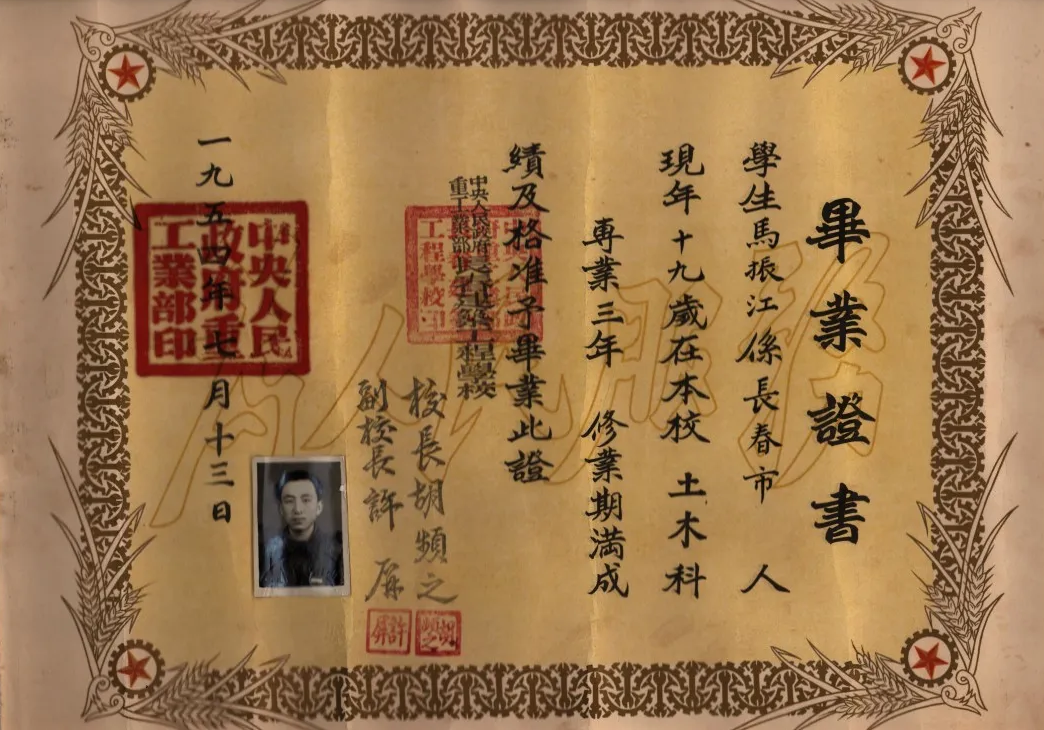 畢業證書
學生馬振江係長春市 人
現年十九歲在本校 土木科
專業三年 修業期滿成
績及格准予畢業此證
中央人民政府
重工業部長春建築工程學校
校長胡頻之
副校長許 屏
胡頻之
許屏
一九五四年七月十三日
中央人民
政府重
工業部印